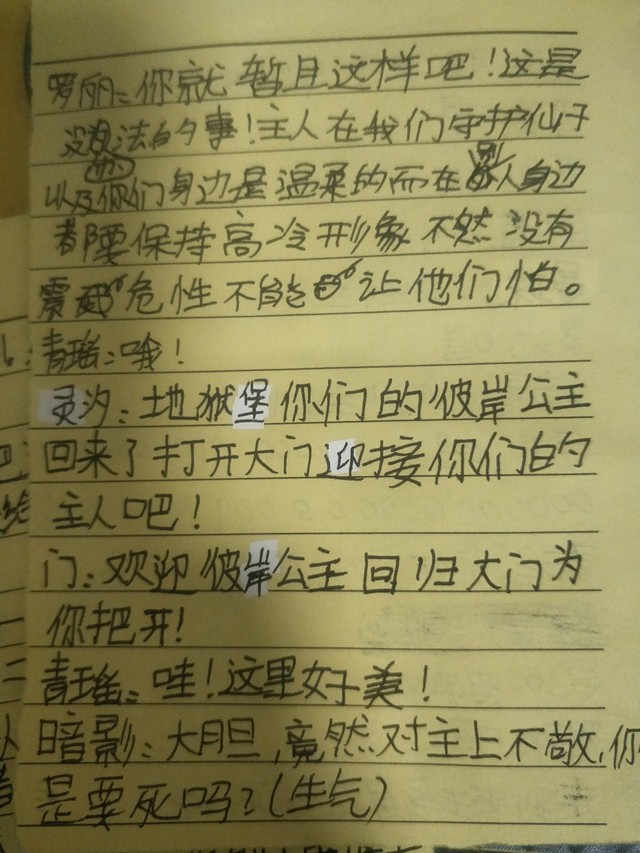 罗丽:你就暂且这样吧!这是
没有法的事!主人在我们守护仙子
以及你们身边是温柔的而在别人身边
都要保持高冷形象不然没有
震 危性不能 让他们怕。
青瑶:哦!
灵汐:地狱堡你们的彼岸公主
回来了打开大门迎接你们的
主人吧!
门:欢迎彼岸公主回归大门为
你把开!
青瑶:哇!这里好美!
暗影:大胆,竟然对主上不敬,你
是要死吗?(生气)